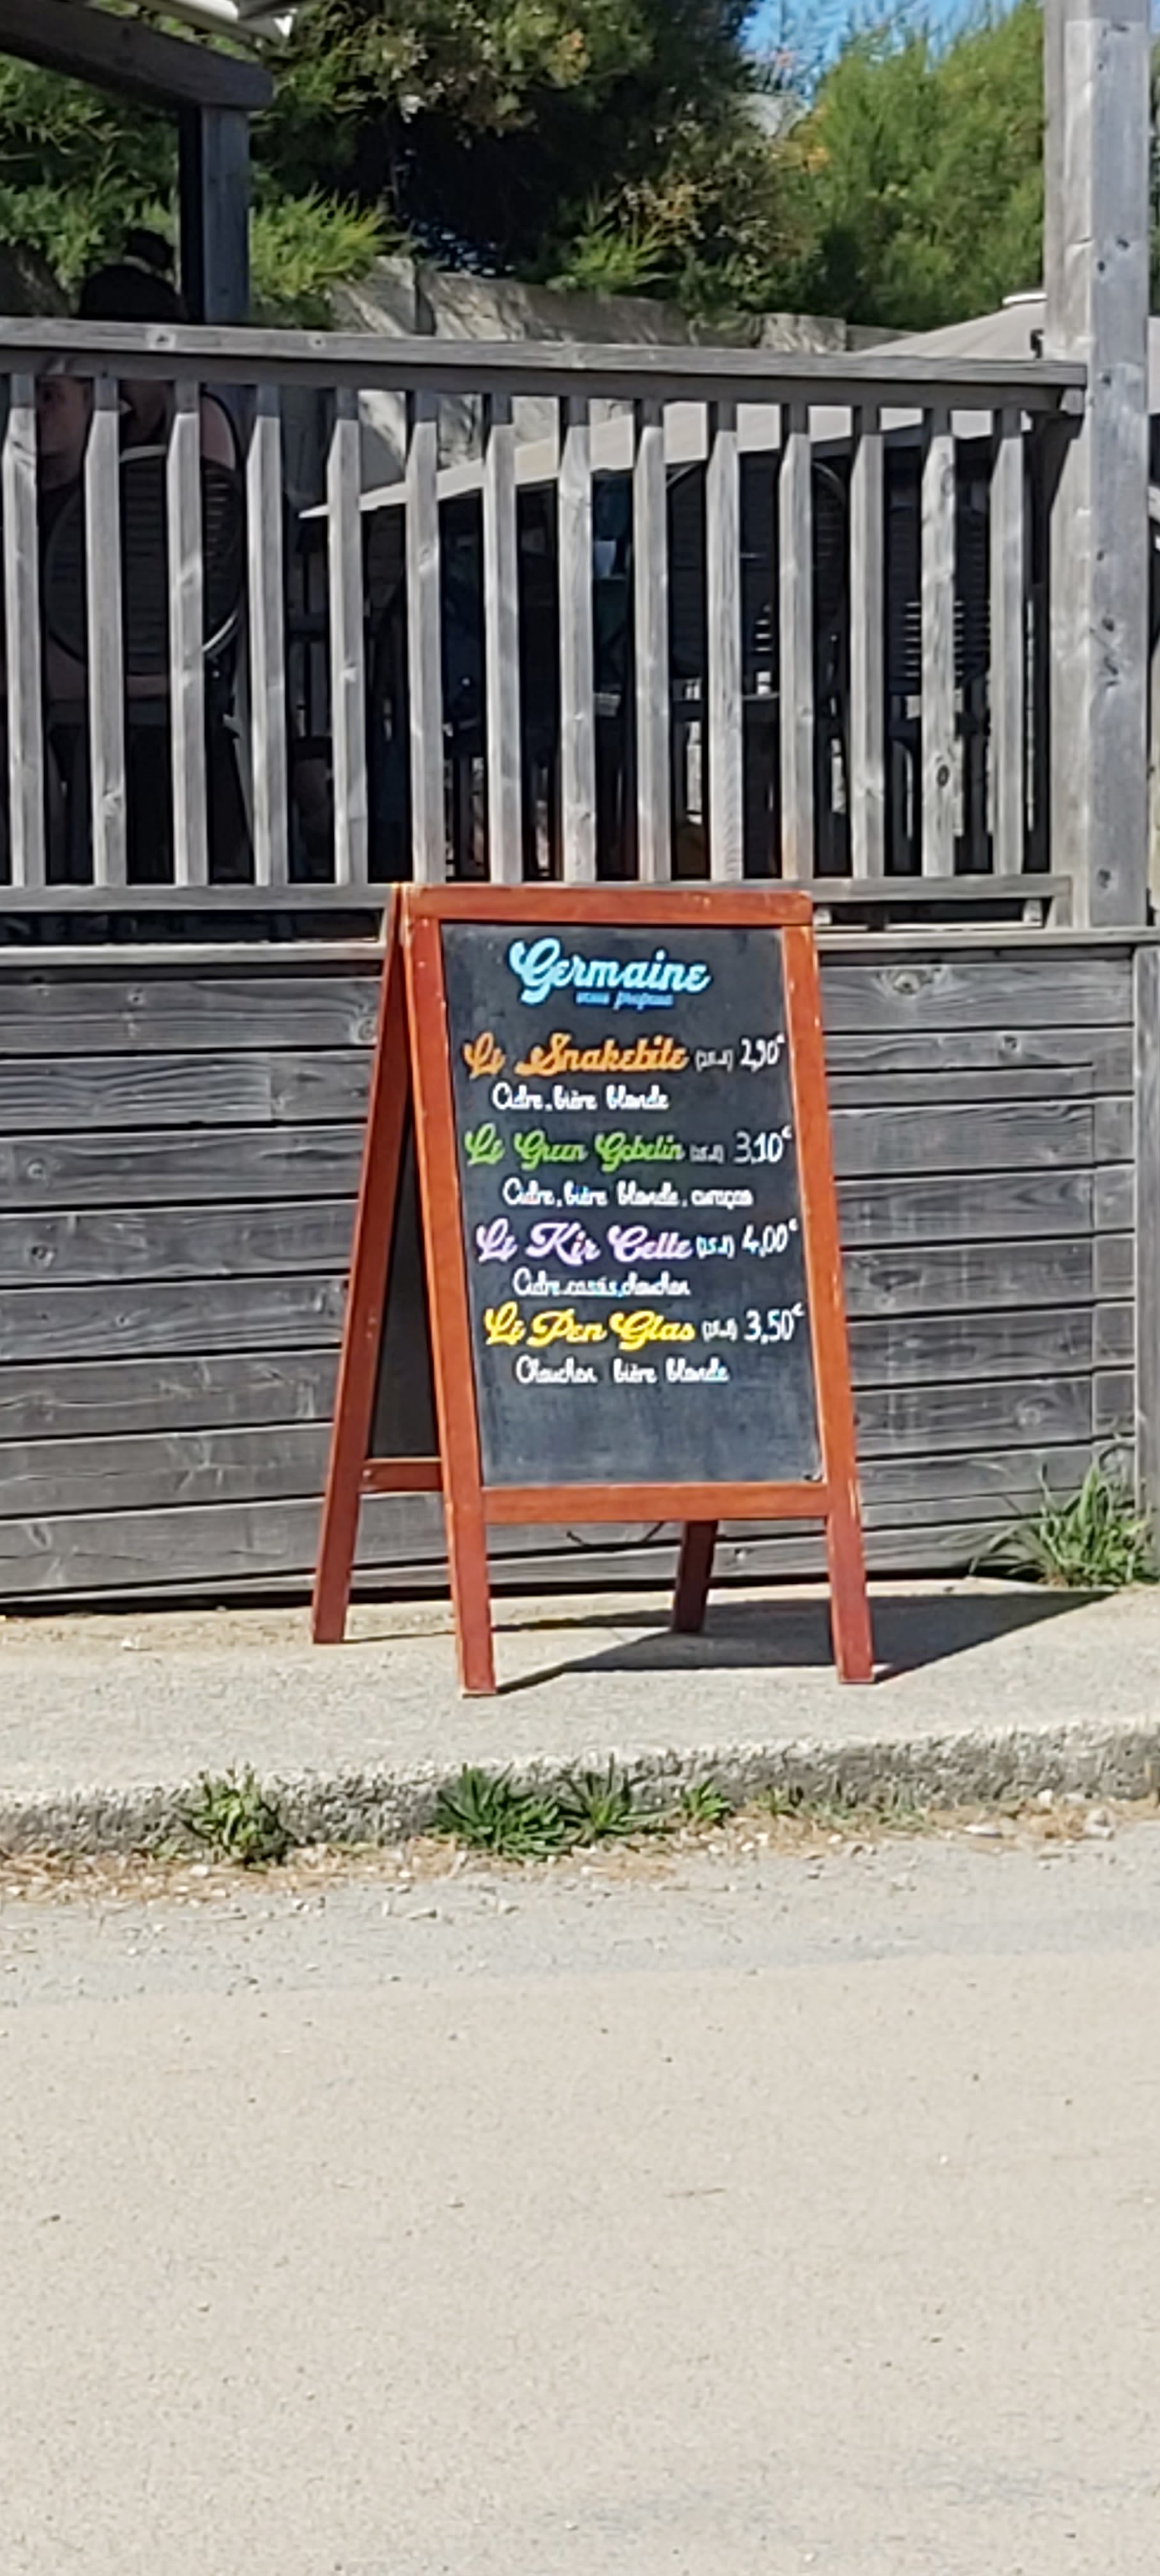 Germaine
vous propose
Le Snakebite 2,90€
Cidre, bière blonde
Le Green Gobelin 3,10€
Cidre, bière blonde, curaçao
Le Kir Celte (15cl) 4,00€
Cidre, cassis, chouchen
Le Pen Glas 3,50€
Chouchen bière blonde